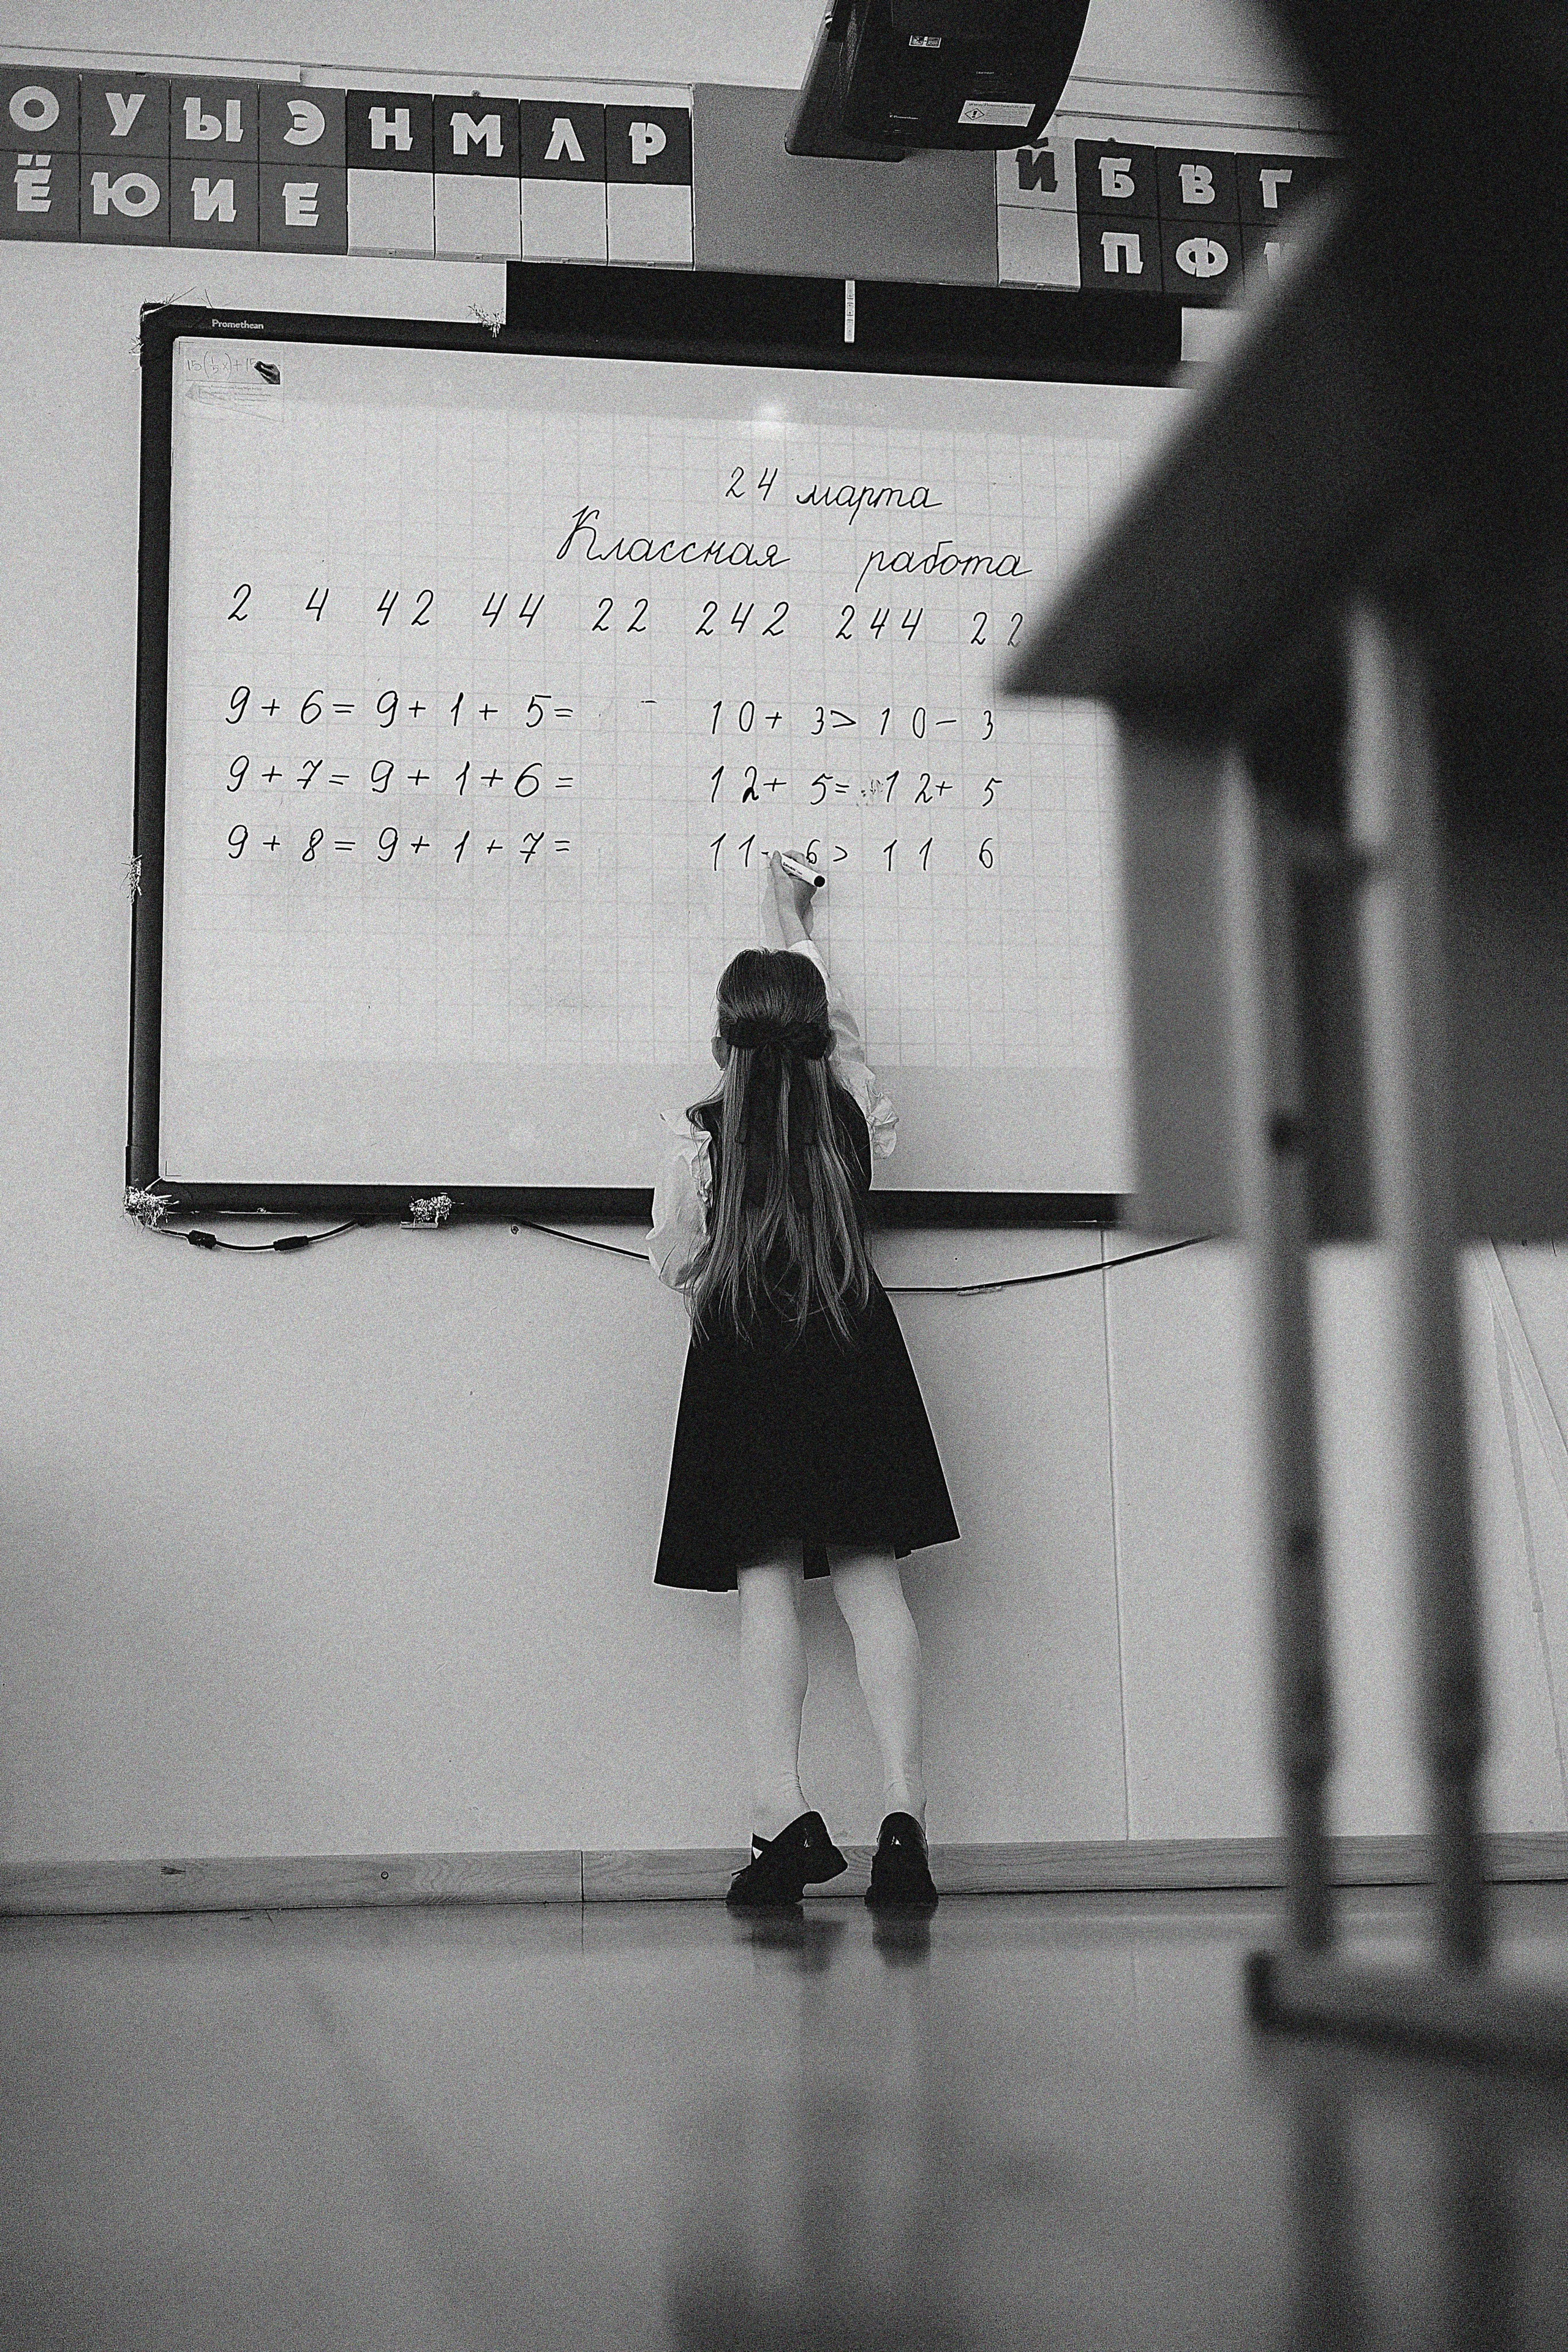 О У Ы Э Н М Л Р Й Б В Г
Ё Ю И Е П Ф
Promethean
24 марта
Классная работа
2 4 42 44 22 242 244 22
9 + 6 = 9 + 1 + 5 = 10 + 3 > 10 - 3
9 + 7 = 9 + 1 + 6 = 12 + 5 = 12 + 5
9 + 8 = 9 + 1 + 7 = 11 6 > 11 6